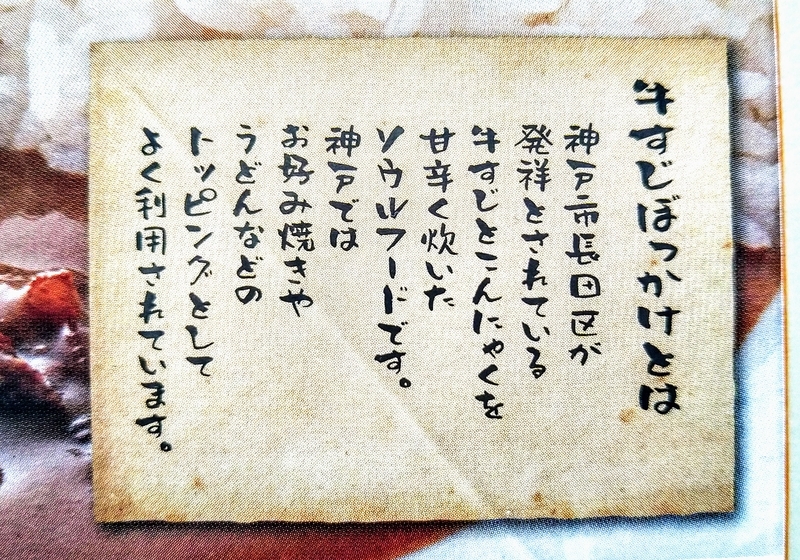 牛すじぼっかけとは
神戸市長田区が
発祥とされている
牛すじとこんにゃくを
甘辛く炊いた
ソウルフードです。
神戸では
お好み焼きや
うどんなどの
トッピングとして
よく利用されています。